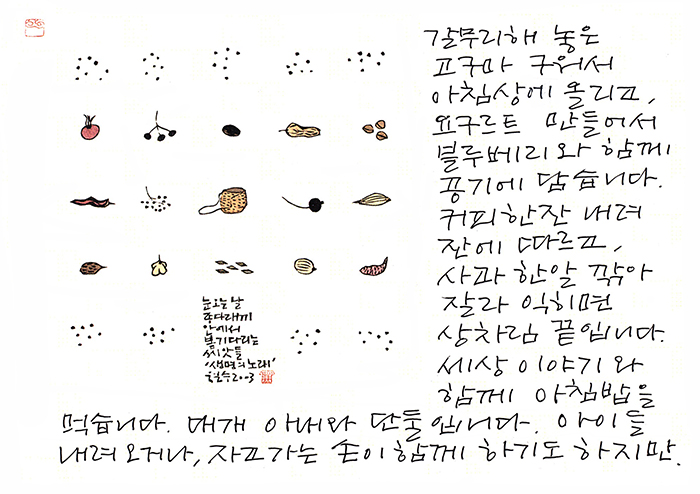 눈오는날
종다래끼
안에서
봄기다리는
씨앗들
'생명의 노래'
철수 2003
갈무리해 놓은
고구마 구워서
아침상에 올리고,
요구르트 만들어서
블루베리와 함께
공기에 담습니다.
커피한잔 내려
잔에 따르고,
사과 한알 깎아
잘라 익히면
상차림 끝입니다.
세상 이야기와
함께 아침밥을
먹습니다. 대개 아내와 단둘입니다. 아이들
내려오거나, 자고가는 손이함께 하기도 하지만.